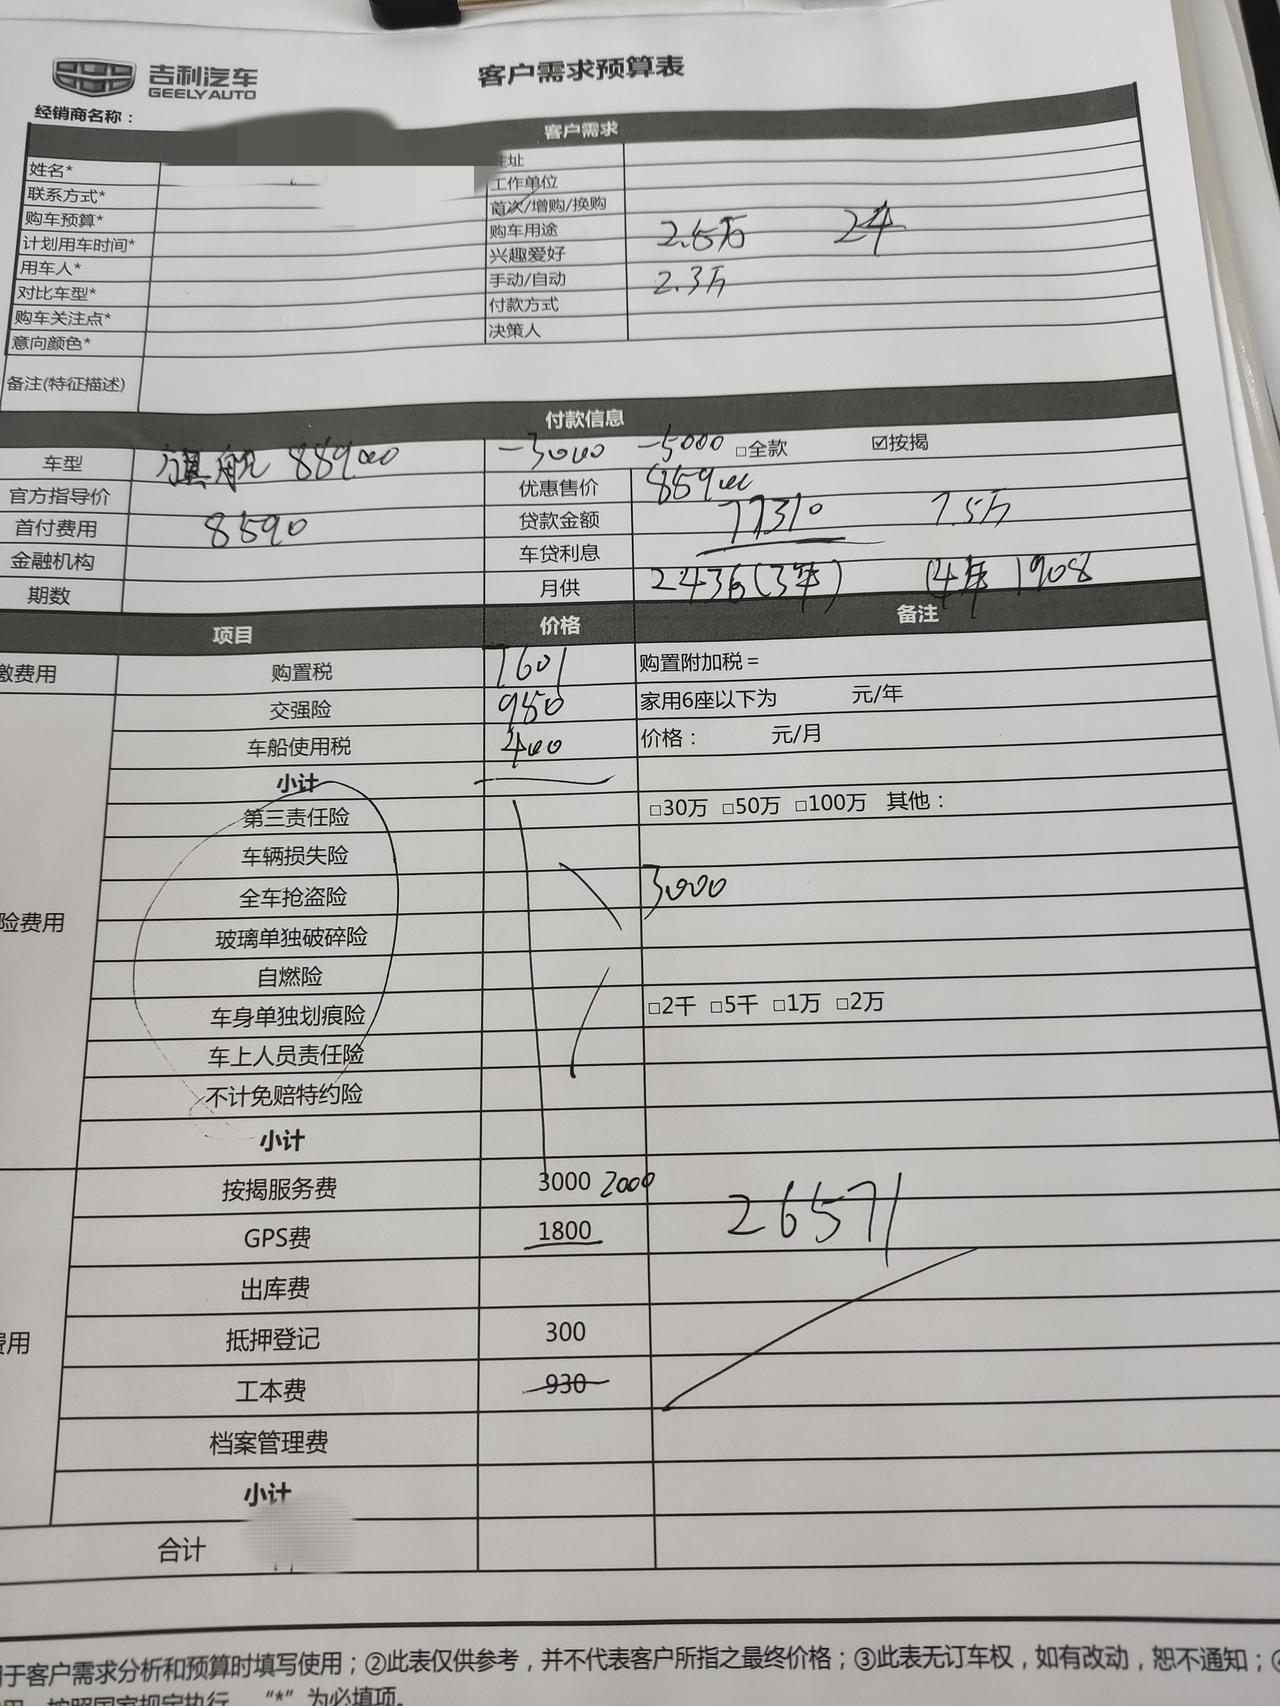 吉利汽车
GEELY AUTO
客户需求预算表
经销商名称：
客户需求
姓名* 住址
联系方式* 工作单位
购车预算* 首次/增购/换购
计划用车时间* 购车用途 2.5万 2年
用车人* 兴趣爱好
对比车型* 手动/自动 2.3万
购车关注点* 付款方式
意向颜色* 决策人
备注(特征描述)
付款信息
车型 旗舰 88900 -3000 -5000 □全款 ☑按揭
官方指导价 优惠售价 85900
首付费用 8590 贷款金额 77310 7.5万
金融机构 车贷利息
期数 月供 2436(3年) (4年 1908
项目 价格 备注
缴费用 购置税 7601 购置附加税=
交强险 950 家用6座以下为 元/年
车船使用税 400 价格： 元/月
小计
第三责任险 □30万 □50万 □100万 其他：
车辆损失险
全车抢盗险 3000
险费用 玻璃单独破碎险
自燃险
车身单独划痕险 □2千 □5千 □1万 □2万
车上人员责任险
不计免赔特约险
小计
按揭服务费 3000 2000 26571
GPS费 1800
出库费
费用 抵押登记 300
工本费 930
档案管理费
小计
合计
于客户需求分析和预算时填写使用；②此表仅供参考，并不代表客户所指之最终价格；③此表无订车权，如有改动，恕不通知；
按照国家规定执行。 "*"为必填项。